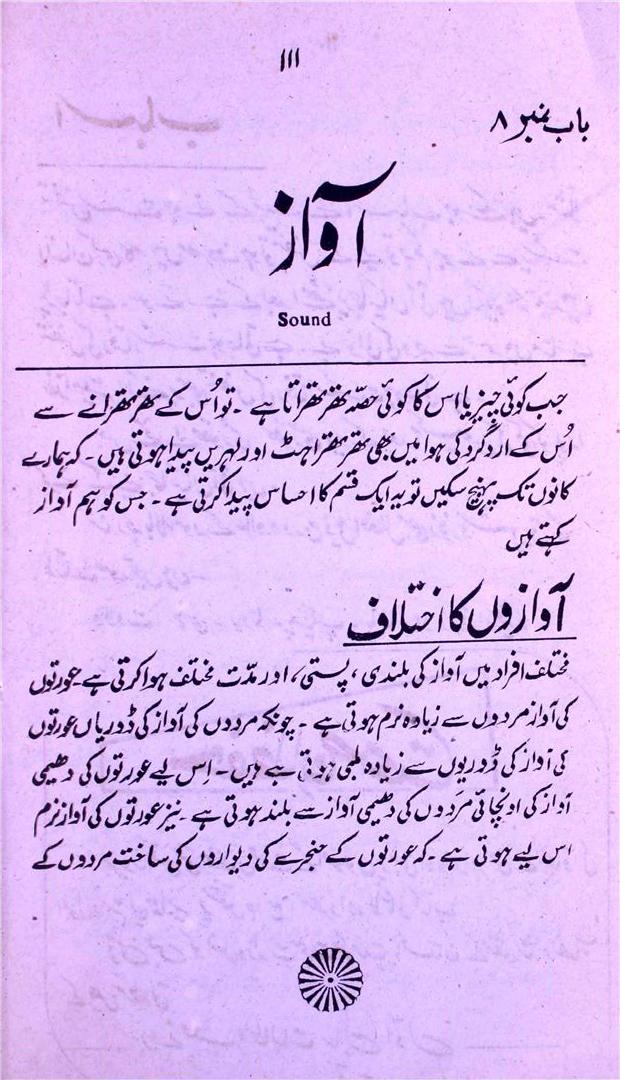 ۱۱۱
باب نمبر ۸
آواز
Sound
جب کوئی چیز یا اس کا کوئی حصہ تھرتھراتا ہے ۔ تو اُس کے تھرتھرانے سے
اُس کے اردگرد کی ہوا میں بھی تھرتھراہٹ اور لہریں پیدا ہوتی ہیں ۔ کہ ہمارے
کانوں تک پہنچ سکیں تو یہ ایک قسم کا احساس پیدا کرتی ہے ۔ جس کو ہم آواز
کہتے ہیں
آوازوں کا اختلاف
مختلف افراد میں آواز کی بلندی ، پستی ، اور مدّت مختلف ہوا کرتی ہے ۔ عورتوں
کی آواز مردوں سے زیادہ نرم ہوتی ہے ۔ چونکہ مردوں کی آواز کی ڈوریاں عورتوں
کی آواز کی ڈوریوں سے زیادہ لمبی ہوتی ہیں ۔ اِس لیے عورتوں کی دھیمی
آواز کی اونچائی مردوں کی دھیمی آواز سے بلند ہوتی ہے ۔ نیز عورتوں کی آواز نرم
اس لیے ہوتی ہے ۔ کہ عورتوں کے حنجرے کی دیواروں کی ساخت مردوں کے